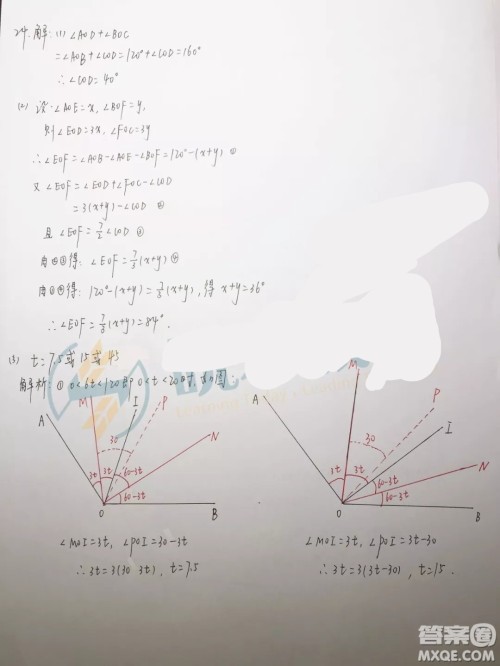 24. 解: (1) ∠AOD+∠BOC
=∠AOB+∠COD=120°+∠COD=160°
∴∠COD=40°
(2) 设:∠AOE=x, ∠BOF=y,
则∠EOD=3x, ∠FOC=3y
∴∠EOF=∠AOB-∠AOE-∠BOF=120°-(x+y) ①
又∠EOF=∠EOD+∠FOC-∠COD
=3(x+y)-∠COD ②
且∠EOF=7/2∠COD ③
由②③得: ∠EOF=7/3(x+y) ④
由①④得: 120°-(x+y)=7/3(x+y), 得 x+y=36°
∴∠EOF=7/3(x+y)=84°.
(3) t=7.5或15或45
解析: ① 0<6t<120即0<t<20时, 如图:
A M I P N B O
30
3t 3t 60-3t
60-3t
∠MOI=3t, ∠POI=30-3t
∴3t=3(30-3t), t=7.5
A M P I N B O
30
3t 3t 60-3t
60-3t
∠MOI=3t, ∠POI=3t-30
∴3t=3(3t-30), t=15.
答案圈
MXQE.COM